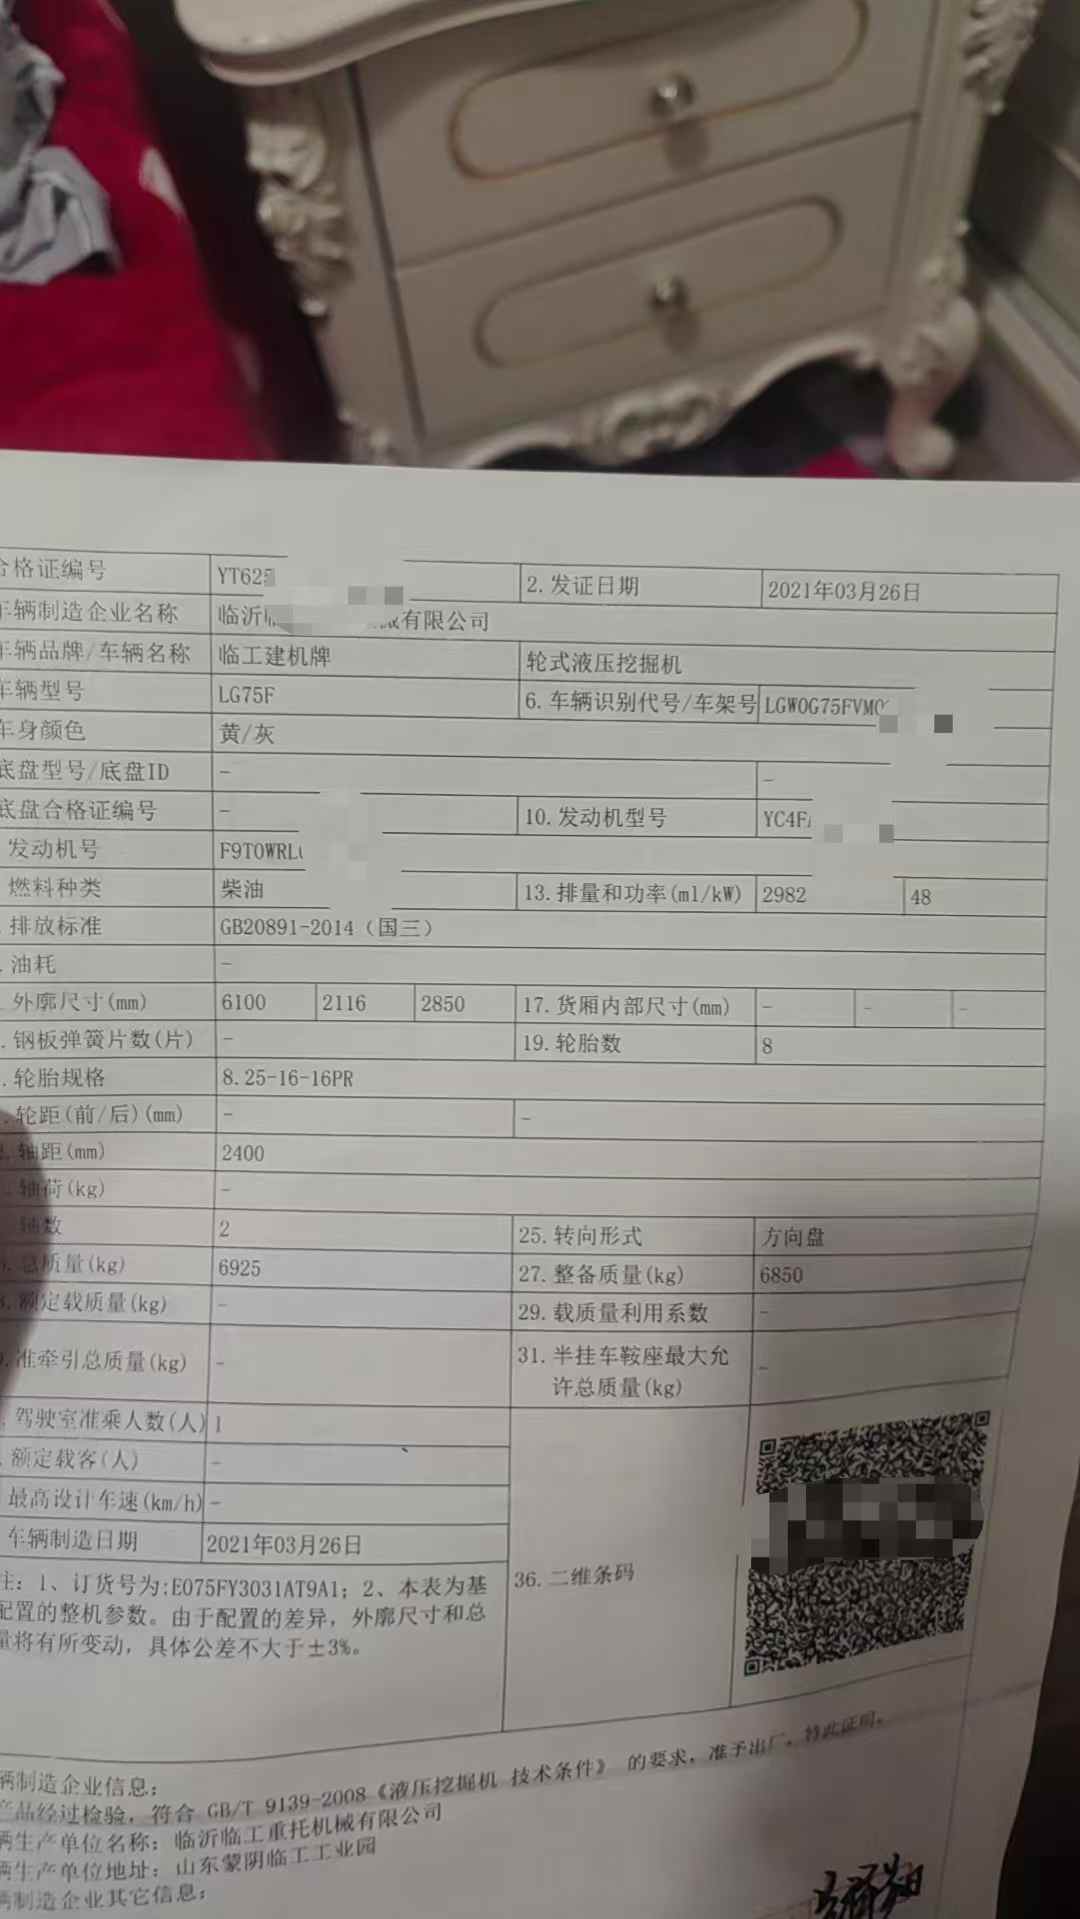 合格证编号 YT625 2.发证日期 2021年03月26日
车辆制造企业名称 临沂 械有限公司
车辆品牌/车辆名称 临工建机牌 轮式液压挖掘机
车辆型号 LG75F 6.车辆识别代号/车架号 LGW0G75FVM0
车身颜色 黄/灰
底盘型号/底盘ID - -
底盘合格证编号 - 10.发动机型号 YC4F
发动机号 F9TOWRL
燃料种类 柴油 13.排量和功率(ml/kW) 2982 48
排放标准 GB20891-2014（国三）
油耗 -
外廓尺寸(mm) 6100 2116 2850 17.货厢内部尺寸(mm) - - -
钢板弹簧片数(片) - 19.轮胎数 8
轮胎规格 8.25-16-16PR
轮距(前/后)(mm) - -
轴距(mm) 2400
轴荷(kg) -
轴数 2 25.转向形式 方向盘
总质量(kg) 6925 27.整备质量(kg) 6850
额定载质量(kg) - 29.载质量利用系数 -
准牵引总质量(kg) - 31.半挂车鞍座最大允
许总质量(kg) -
驾驶室准乘人数(人) 1
额定载客(人) -
最高设计车速(km/h) -
车辆制造日期 2021年03月26日
36.二维条码
注：1、订货号为:E075FY3031AT9A1；2、本表为基
配置的整机参数。由于配置的差异，外廓尺寸和总
量将有所变动，具体公差不大于±3%。
辆制造企业信息：
产品经过检验，符合 GB/T 9139-2008《液压挖掘机 技术条件》 的要求，准予出厂，特此证明。
辆生产单位名称：临沂临工重托机械有限公司
辆生产单位地址：山东蒙阴临工工业园
辆制造企业其它信息：